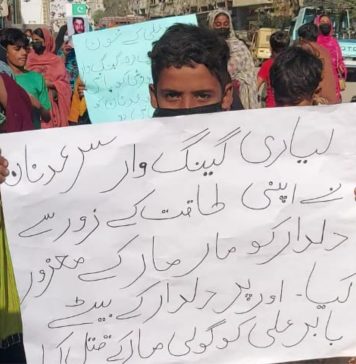 علی کے خون
لیاری گینگ وار سرعدنان
نے اپنی طاقت کے زور سے
دلدار کو مار مار کے معزور
کیا۔ اور پر دلدار کے بیٹے
بابر علی کو گولی مار کے قتل کیا